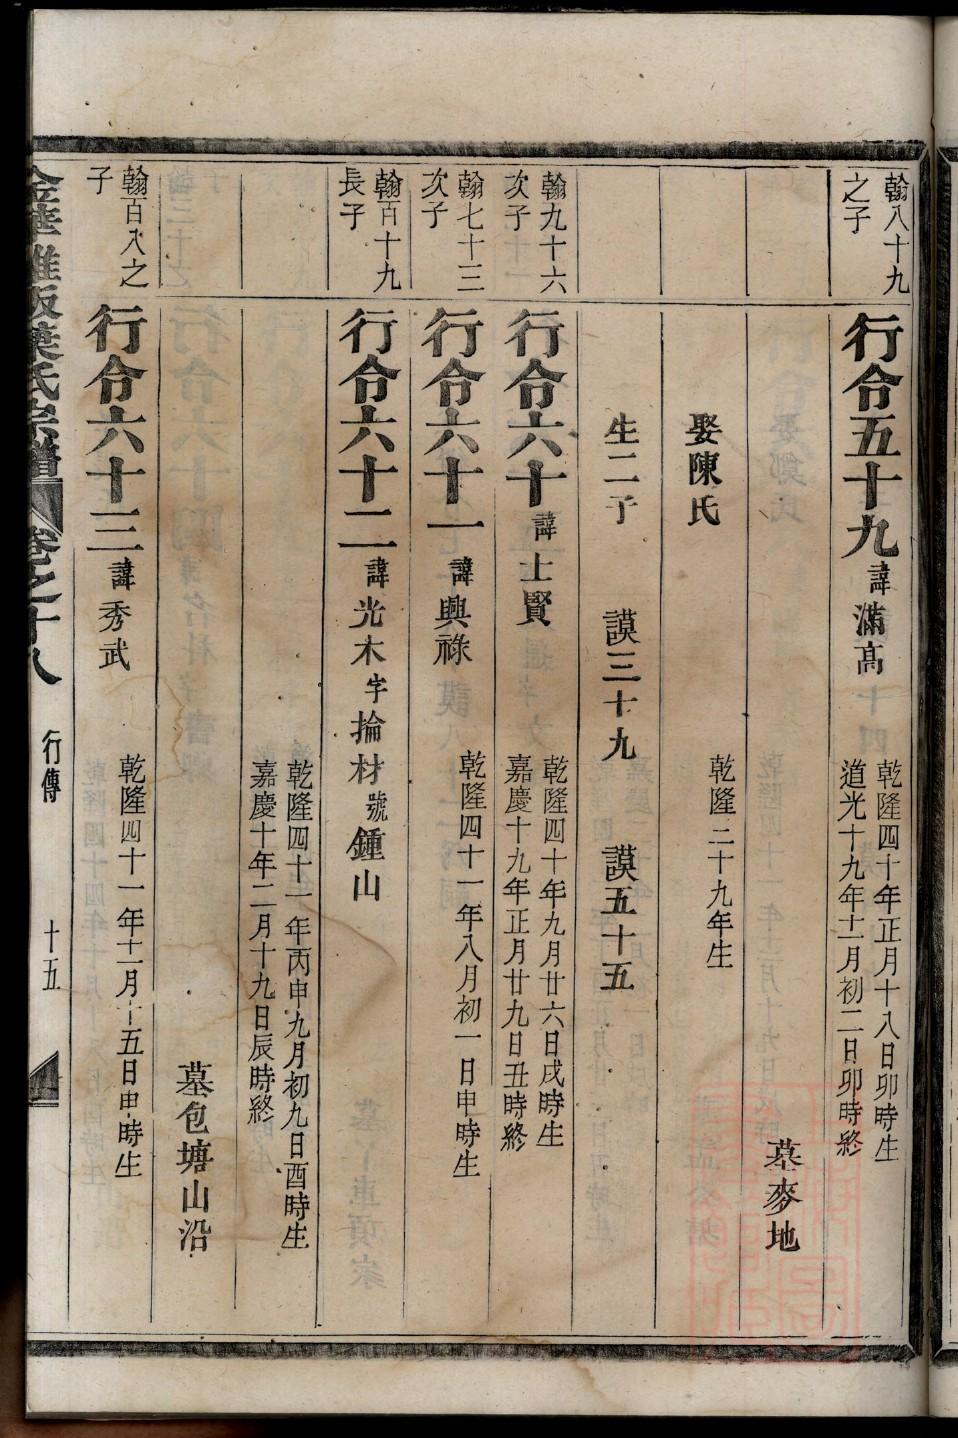 翰八十九
之子
行令五十九諱滿高
乾隆四十年正月十八日卯時生
道光十九年十二月初二日卯時終
墓麥地
娶陳氏
乾隆二十九年生
生二子 謨三十九 謨五十五
翰九十六
次子
行令六十諱士賢
乾隆四十年九月廿六日戌時生
嘉慶十九年正月廿九日丑時終
翰七十三
次子
行令六十一諱興祿
乾隆四十一年八月初一日申時生
翰百十九
長子
行令六十二諱光木字掄材號鍾山
乾隆四十一年丙申九月初九日酉時生
嘉慶十年二月十九日辰時終
墓包塘山沿
翰百八之
子
行令六十三諱秀武
乾隆四十一年十一月十五日申時生
金華雅畈葉氏宗譜 卷之十八 行傳 十五